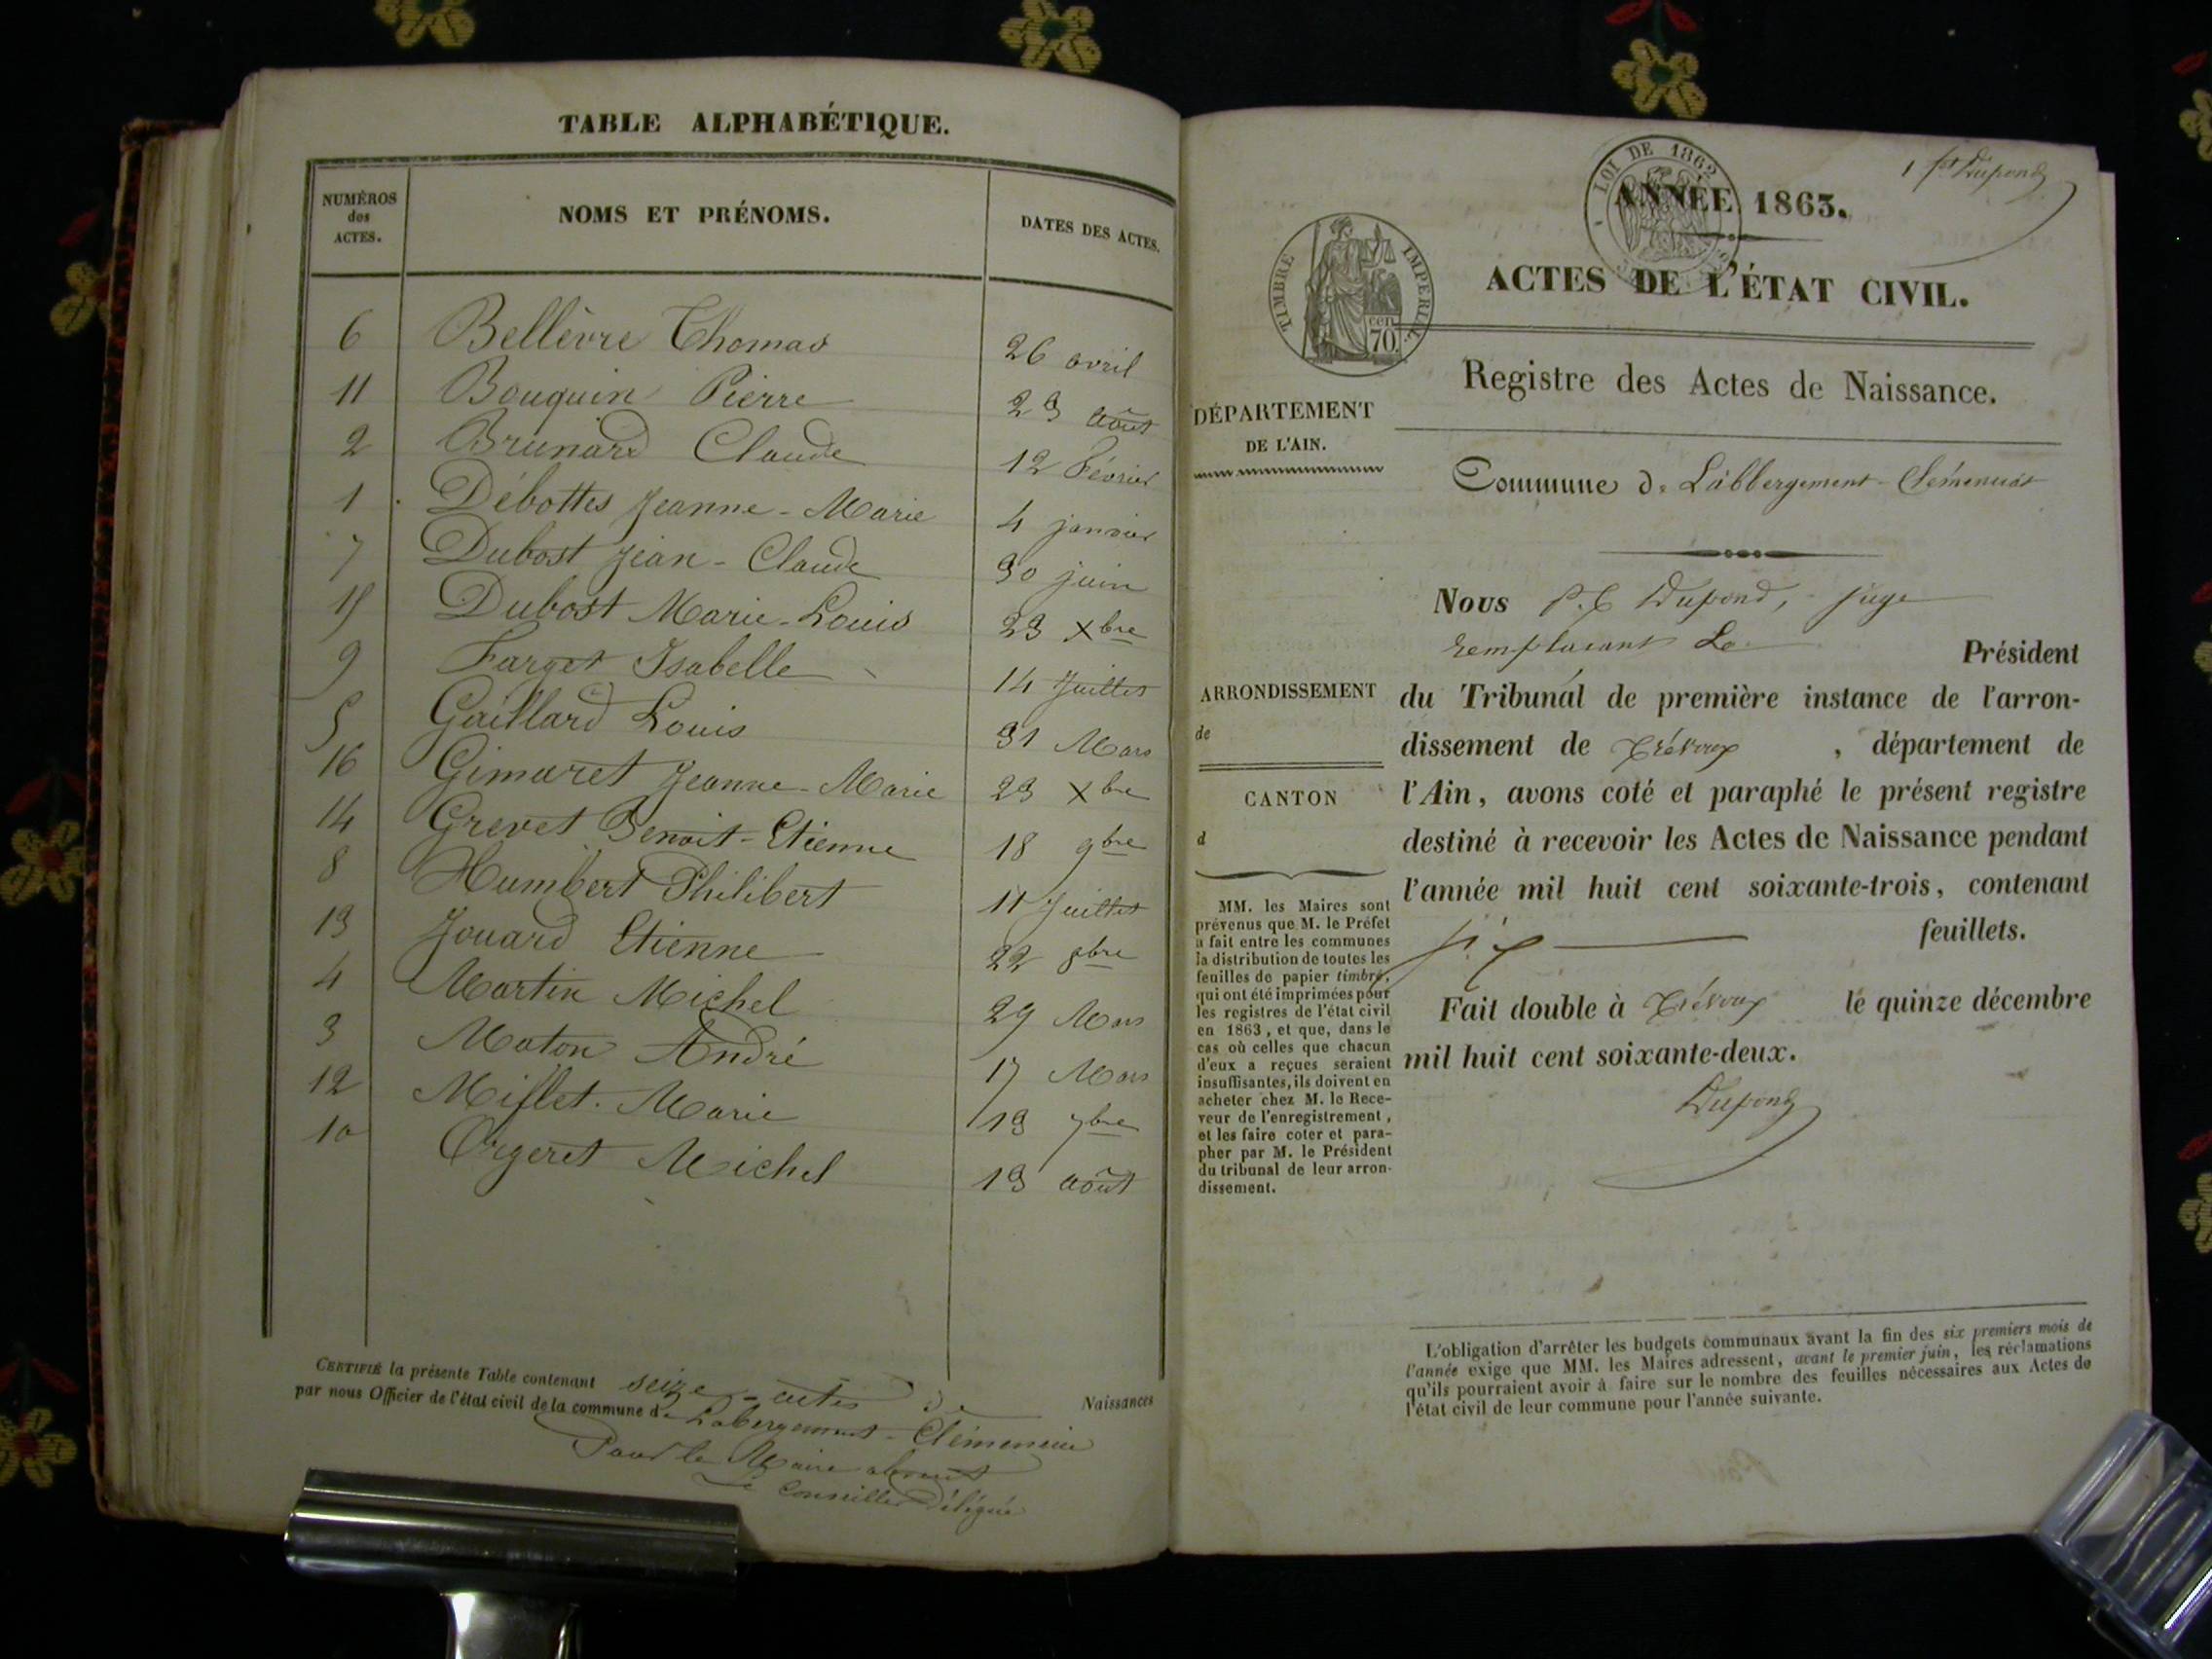 TABLE ALPHABÉTIQUE.
NUMÉROS
des
ACTES.
NOMS ET PRÉNOMS.
DATES DES ACTES.
6 Bellèvre Thomas 26 avril
11 Bouquin Pierre 23 août
2 Brunard Claude 12 février
1 Débottes Jeanne-Marie 4 janvier
7 Dubost Jean-Claude 30 juin
15 Dubost Marie-Louis 23 Xbre
9 Farget Isabelle 14 Juillet
5 Gaillard Louis 31 Mars
16 Gimaret Jeanne-Marie 23 Xbre
14 Grevet Benoit-Etienne 18 9bre
8 Humbert Philibert 11 Juillet
13 Jouard Etienne 22 8bre
4 Martin Michel 29 Mars
3 Maton André 17 Mars
12 Millet Marie 13 7bre
10 Orgeret Michel 13 août
CERTIFIÉ la présente Table contenant seize actes de Naissances
par nous Officier de l'état civil de la commune de Labergement-Clémencia
Pour le Maire absent
Le Conseiller Délégué
1 fet Dupond
LOI DE 1862
ANNÉE 1863.
TIMBRE IMPÉRIAL
70 cen
ACTES DE L'ÉTAT CIVIL.
Registre des Actes de Naissance.
DÉPARTEMENT
DE L'AIN.
Commune de L'abbergement-Clémenciat
Nous P. C Dupond, juge
remplacant Le Président
du Tribunal de première instance de l'arron-
dissement de Trévoux, département de
l'Ain, avons coté et paraphé le présent registre
destiné à recevoir les Actes de Naissance pendant
l'année mil huit cent soixante-trois, contenant
six feuillets.
Fait double à Trévoux le quinze décembre
mil huit cent soixante-deux.
Dupond
ARRONDISSEMENT
de
CANTON
d
MM. les Maires sont
prévenus que M. le Préfet
a fait entre les communes
la distribution de toutes les
feuilles de papier timbré,
qui ont été imprimées pour
les registres de l'état civil
en 1863, et que, dans le
cas où celles que chacun
d'eux a reçues seraient
insuffisantes, ils doivent en
acheter chez M. le Rece-
veur de l'enregistrement,
et les faire coter et para-
pher par M. le Président
du tribunal de leur arron-
dissement.
L'obligation d'arrêter les budgets communaux avant la fin des six premiers mois de
l'année exige que MM. les Maires adressent, avant le premier juin, les réclamations
qu'ils pourraient avoir à faire sur le nombre des feuilles nécessaires aux Actes de
l'état civil de leur commune pour l'année suivante.